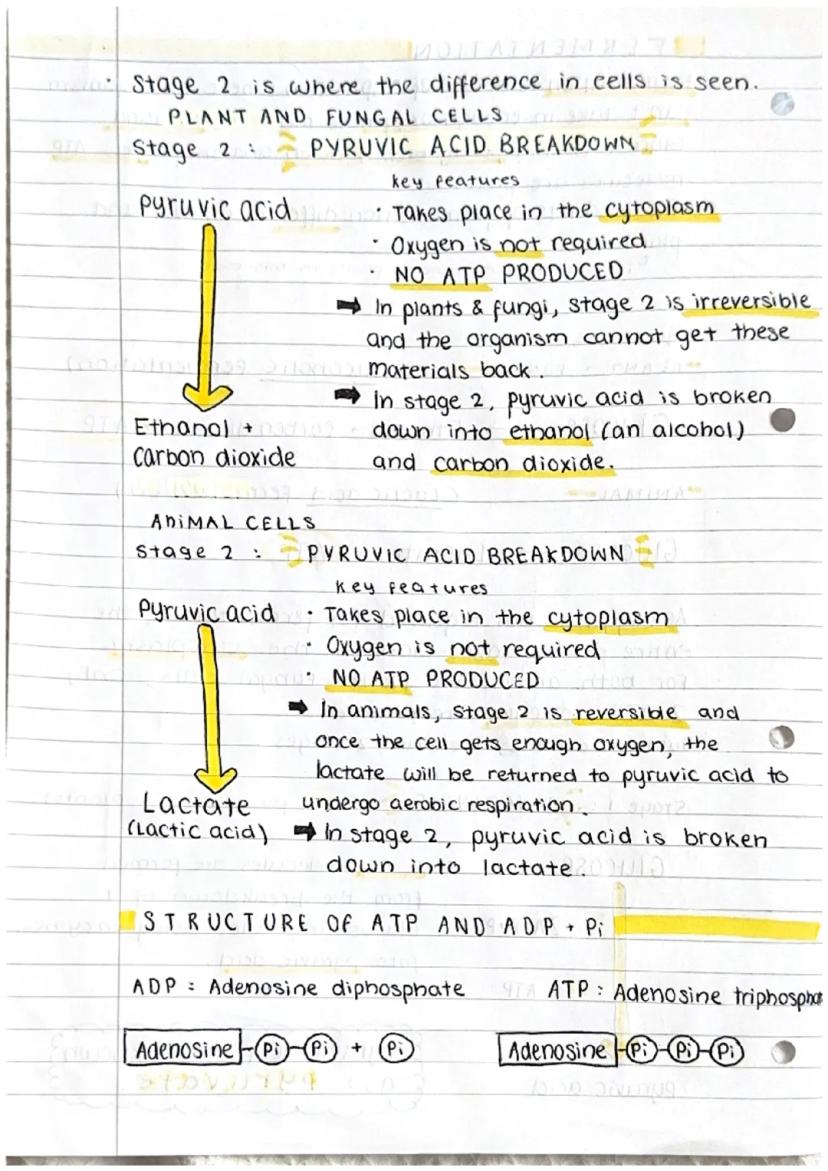 • Stage 2 is where the difference in cells is seen.
PLANT AND FUNGAL CELLS
Stage 2 : PYRUVIC ACID BREAKDOWN
key features
Pyruvic acid
• Takes place in the cytoplasm
• Oxygen is not required
• NO ATP PRODUCED
➡ In plants & fungi, stage 2 is irreversible
and the organism cannot get these
materials back.
➡ In stage 2, pyruvic acid is broken
down into ethanol (an alcohol)
and carbon dioxide.
Ethanol +
Carbon dioxide
ANIMAL CELLS
Stage 2 : PYRUVIC ACID BREAKDOWN
Key features
Pyruvic acid
• Takes place in the cytoplasm
• Oxygen is not required
• NO ATP PRODUCED
➡ In animals, stage 2 is reversible and
once the cell gets enough oxygen, the
lactate will be returned to pyruvic acid to
undergo aerobic respiration.
Lactate
(Lactic acid)
➡ In stage 2, pyruvic acid is broken
down into lactate.
STRUCTURE OF ATP AND ADP + Pi
ADP : Adenosine diphosphate ATP : Adenosine triphospha
Adenosine - Pi - Pi + Pi Adenosine - Pi - Pi - Pi